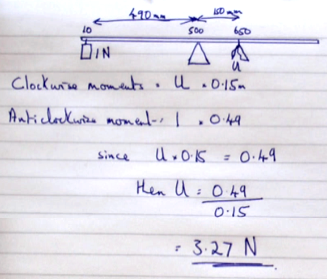 490 mm 150 mm
10 500 650
1N U
Clockwise moments = U × 0.15m
Anticlockwise moment = 1 × 0.49
since U × 0.15 = 0.49
then U = 0.49
0.15
= 3.27 N